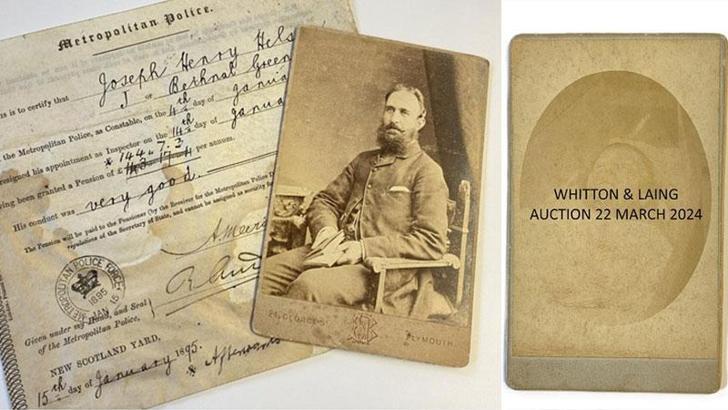 Metropolitan Police.
is is to certify that Joseph Henry Hels
J or Bethnal Green
the Metropolitan Police, as Constable, on the 4th day of Janua
resigned his appointment as Inspector on the 14th day of Janua
ving been granted a Pension of £ per annum.
His conduct was very good.
The Pension will be paid to the Pensioner (by the Receiver for the Metropolitan Police D
regulations of the Secretary of State, and cannot be assigned as security fo
METROPOLITAN POLICE FORCE
JAN 15
1895
Given under my Hands and Seal
of the Metropolitan Police,
NEW SCOTLAND YARD,
15th day of January 1895.
24, GEORGE ST
PLYMOUTH
WHITTON & LAING
AUCTION 22 MARCH 2024